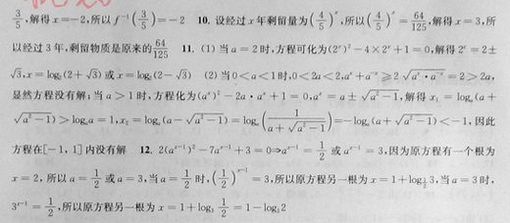 3/5,解得 x=-2,所以 f⁻¹(3/5)=-2  10. 设经过 x 年剩留量为(4/5)ˣ,所以(4/5)ˣ=64/125,解得 x=3,所
以经过 3 年,剩留物质是原来的64/125  11. (1) 当 a=2 时,方程可化为(2ˣ)²-4×2ˣ+1=0,解得 2ˣ=2±
√3,x=log₂(2+√3)或 x=log₂(2-√3)  (2) 当 0<a<1 时,0<2a<2,aˣ+a⁻ˣ≥2√(aˣ·a⁻ˣ)=2>2a,
显然方程没有解;当 a>1 时,方程化为(aˣ)²-2a·aˣ+1=0,aˣ=a±√(a²-1),解得 x₁=logₐ(a+
√(a²-1))>logₐa=1,x₂=logₐ(a-√(a²-1))=logₐ(1/(a+√(a²-1)))=-logₐ(a+√(a²-1))<-1,因此
方程在[-1,1]内没有解  12. 2(aˣ⁻¹)²-7aˣ⁻¹+3=0⇒aˣ⁻¹=1/2 或 aˣ⁻¹=3,因为原方程有一个根为
x=2,所以 a=1/2 或 a=3,当 a=1/2 时,(1/2)ˣ⁻¹=3,所以原方程另一根为 x=1+log_{1/2}3,当 a=3 时,
3ˣ⁻¹=1/2,所以原方程另一根为 x=1+log₃1/2=1-log₃2